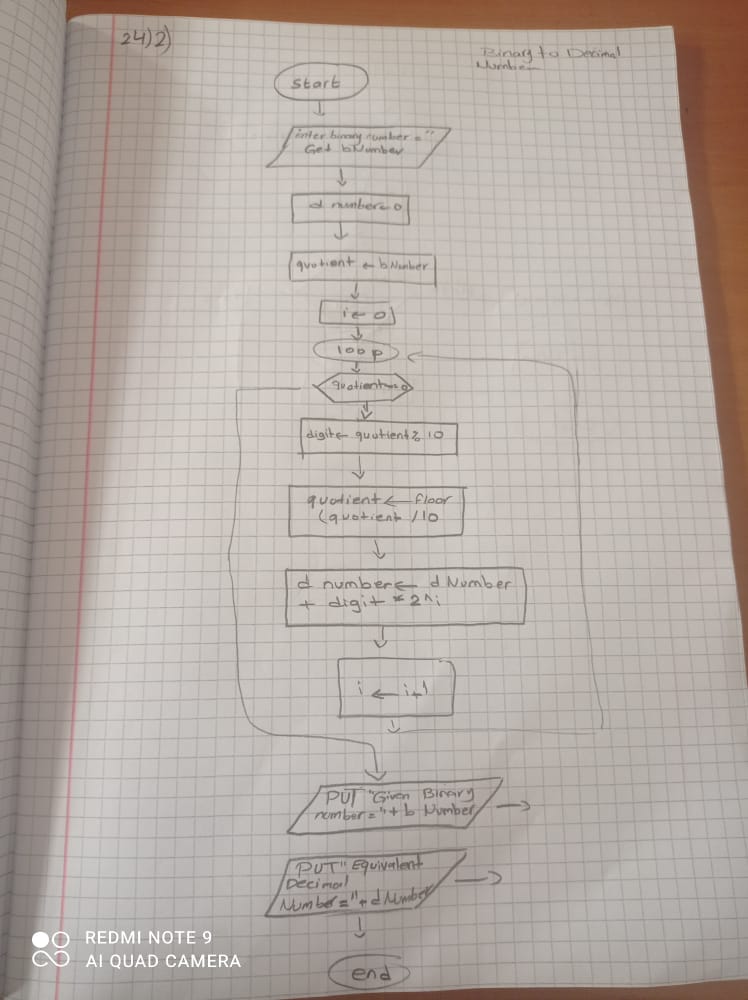 24)2)
Binary to Decimal
Number
start
inter binary number = "
Get bNumber
d number← 0
quotient ← bNumber
i ← 0
loop
digit← quotient % 10
quotient ← floor
(quotient /10
d number← dNumber
+ digit * 2^i
i ← i+1
PUT "Given Binary
number="+ b Number
PUT" Equivalent
Decimal
Number="+ dNumber
end
REDMI NOTE 9
AI QUAD CAMERA